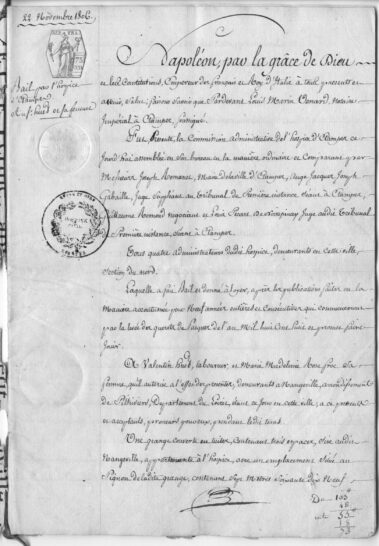 22 Novembre 1806.
Bail par l'hospice
d'Étampes
à et sa femme
Napoléon, par la grâce de Dieu
et les Constitutions, Empereur des français et Roy d'Italie, à tous présents et
avenir, Salut; faisons Savoir que Pardevant Louis Marin Venard, Notaire
Impérial à Étampes, Soussigné;
Fut Présente, la Commission administrative de l'hospice d'Étampes ce
jourd'hui assemblée en son bureau en la manière ordinaire et Comparant par
Messieurs Joseph Romanet, Maire de la ville d'Étampes, Ange Jacques Joseph
Gabaille, Juge Suppléant au tribunal de Première instance séant à Étampes,
Guillaume négociant et Louis Picart de Noirépinay Juge audit tribunal
de Première instance, séant à Étampes.
Tous quatre administrateurs dudit hospice, demeurants en cette ville,
Section du nord.
Laquelle a fait Bail et donné à loyer, après les publications faites en la
Manière accoutumée pour Neuf années entières et Consécutives qui commenceront
par la levée des guérets de l'an Mil huit Cent huit et promet faire
Jouir.
À Valentin laboureur, et Marie Madeleine Rose sa
femme, qu'il autorise à l'effet des présentes, demeurants à Mangeville, arrondissement
de Pithiviers, Département du Loiret, étant ce jour en cette ville, à ce présents
et acceptants, preneurs pendant ledit tems.
Une grange Couverte en tuiles, Contenant trois espaces, sise audit
Mangeville, appartenante à l'hospice, avec un emplacement situé au
Pignon de ladite grange, contenant Sept Mètres Soixante dix Neuf